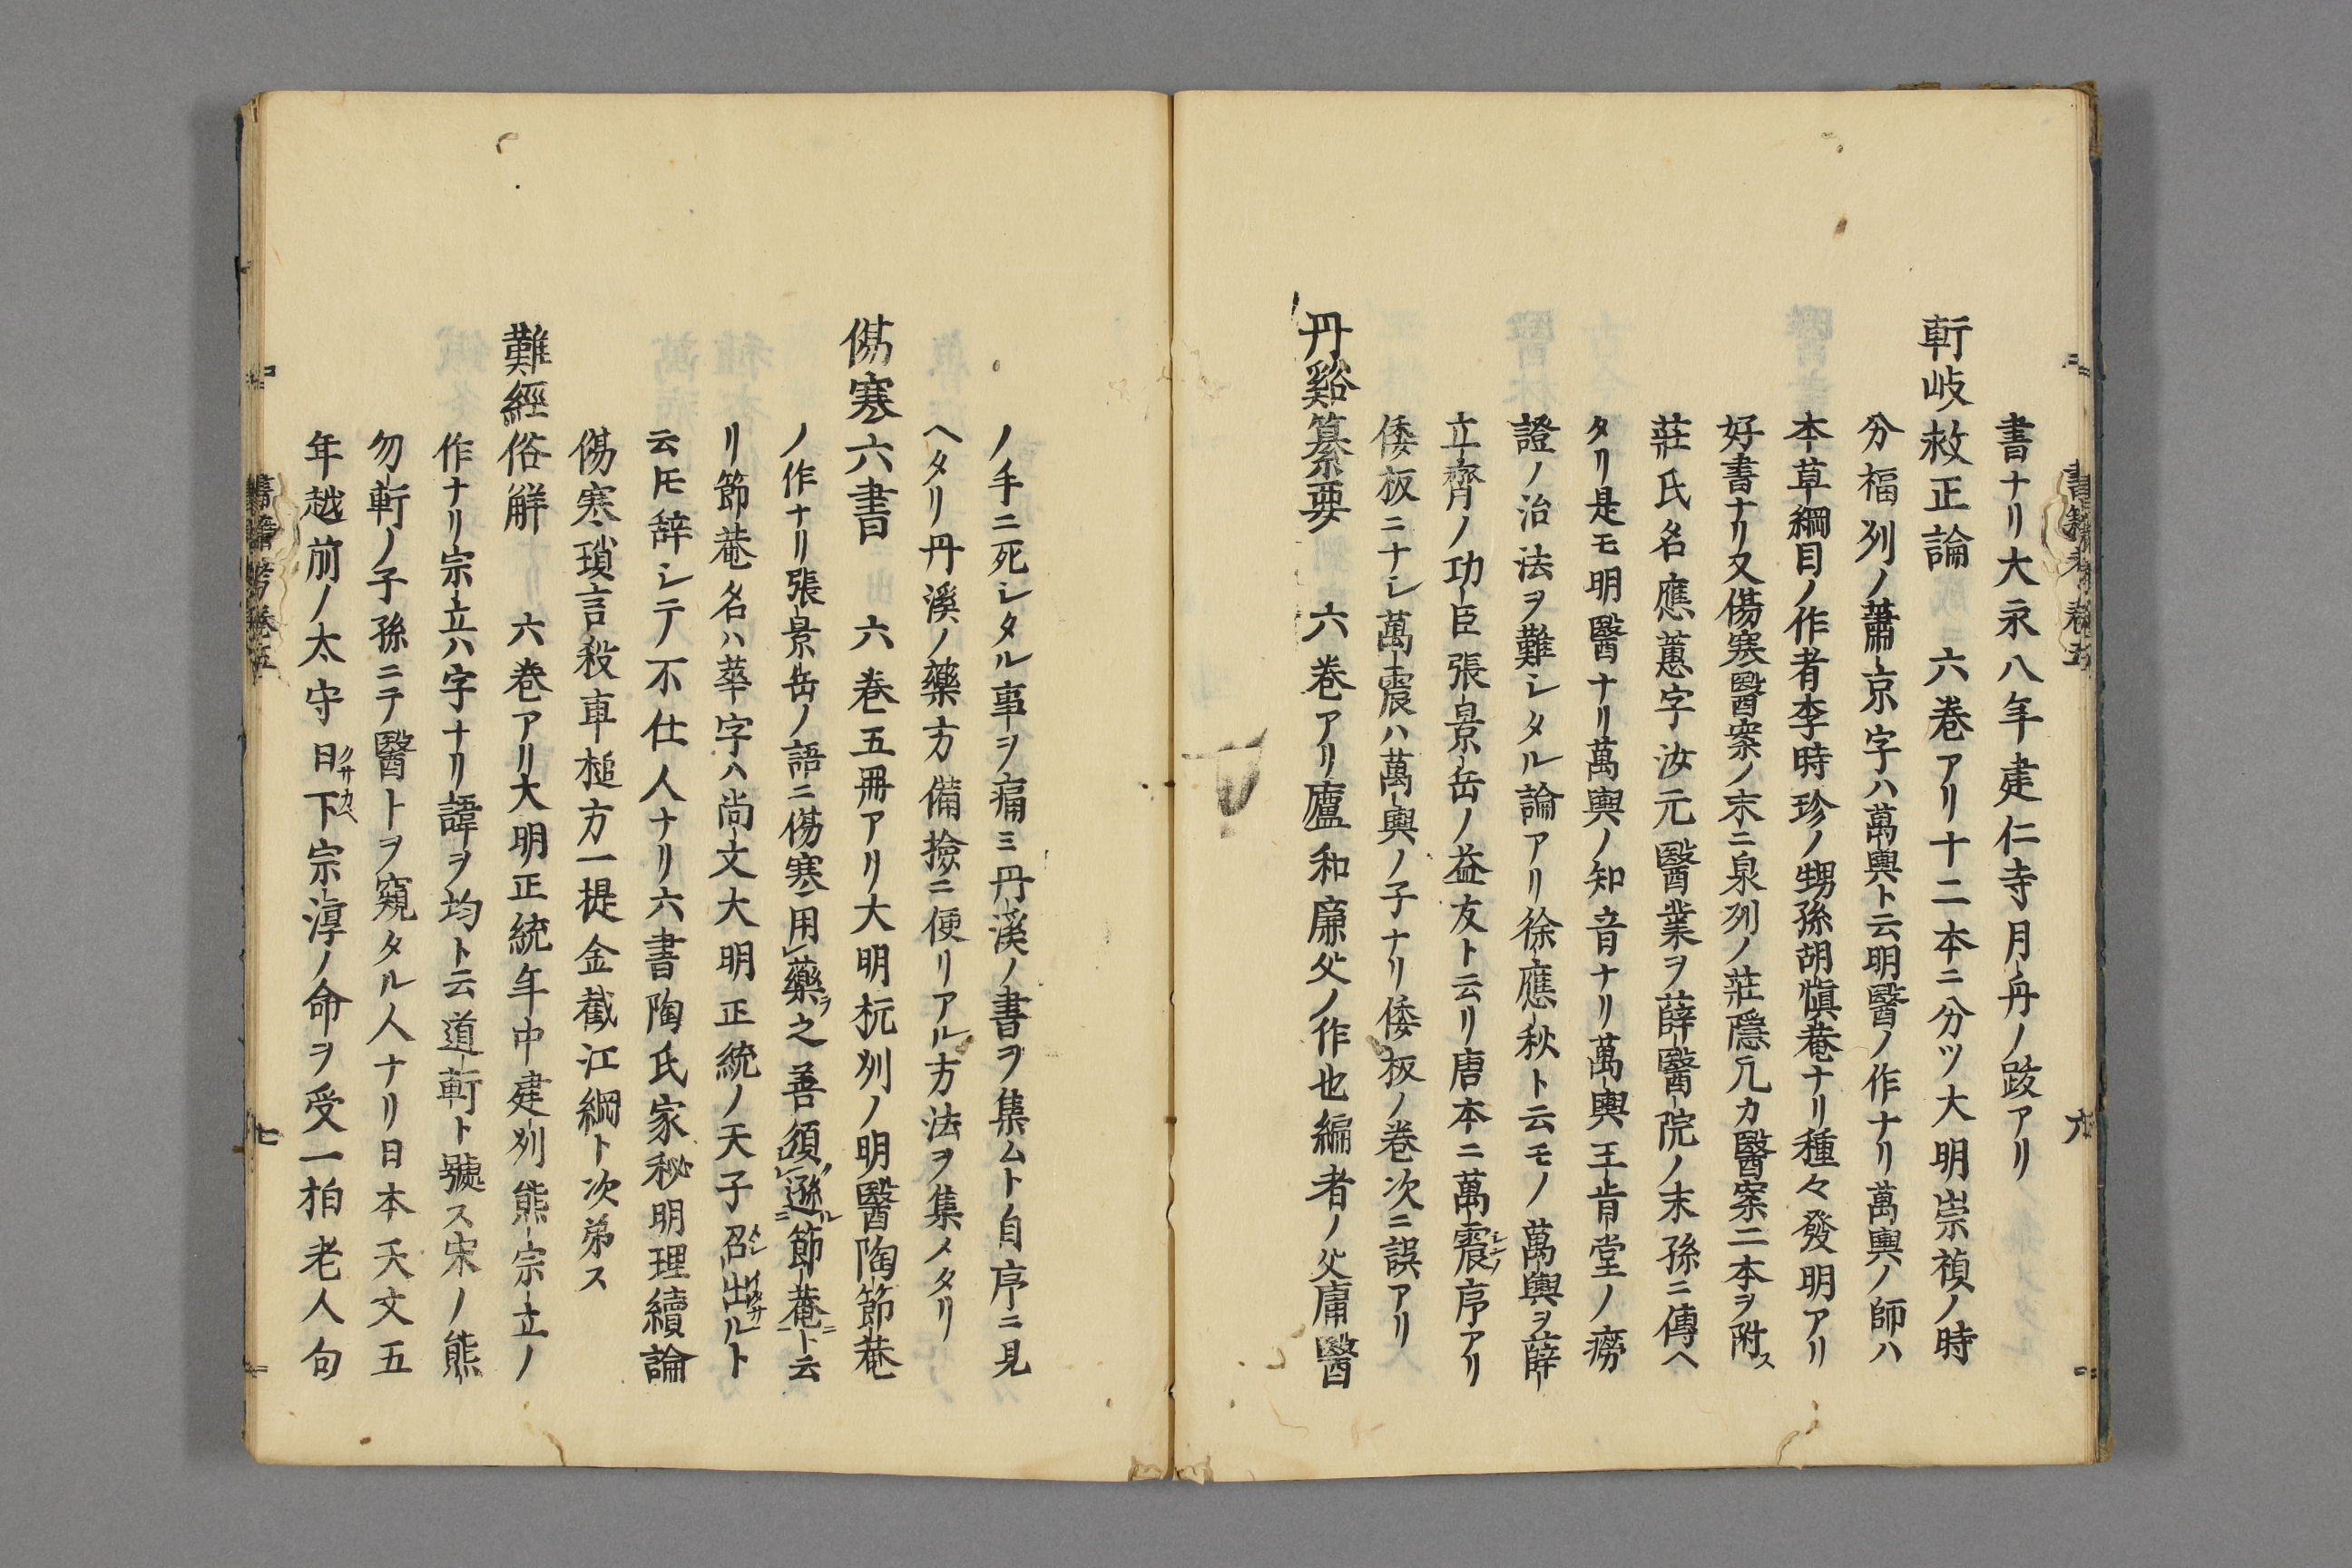 書ナリ大永八年建仁寺月舟ノ跋アリ
軒岐救正論　六巻アリ十二本ニ分ツ大明崇禎ノ時
分福刕ノ蕭京字ハ萬輿ト云明醫ノ作ナリ萬輿ノ師ハ
本草綱目ノ作者李時珍ノ甥孫胡愼菴ナリ種々發明アリ
好書ナリ又傷寒醫案ノ末ニ泉刕ノ莊隱凢カ醫案二本ヲ附ス
莊氏名應蕙字汝元醫業ヲ薛醫院ノ末孫ニ傳ヘ
タリ是モ明醫ナリ萬輿ノ知音ナリ萬輿王肯堂ノ癆
證ノ治法ヲ難シタル論アリ徐應秋ト云モノ萬輿ヲ薛
立齊ノ功臣張景岳ノ益友ト云リ唐本ニ萬震序アリ
倭板ニナシ萬震ハ萬輿ノ子ナリ倭板ノ巻次ニ誤アリ
丹谿纂要　六巻アリ廬和廉父ノ作也編者ノ父庸醫
ノ手ニ死シタル事ヲ痛ミ丹溪ノ書ヲ集ムト自序ニ見
ヘタリ丹溪ノ藥方備撿ニ便リアル方法ヲ集メタリ
傷寒六書　六巻五冊アリ大明杭刕ノ明醫陶節菴
ノ作ナリ張景岳ノ語ニ傷寒用藥ヲ之善須遜ル節菴ニト云
リ節菴名ハ華字ハ尚文大明正統ノ天子召出ルト
云ﾄﾓ辞シテ不仕人ナリ六書陶氏家秘明理續論
傷寒瑣言殺車槌方一提金截江綱ト次第ス
難經俗解　六巻アリ大明正統年中建刕熊宗立ノ
作ナリ宗立六字ナリ諱ヲ均ト云道軒ト號ス宋ノ熊
勿軒ノ子孫ニテ醫トヲ窺タル人ナリ日本天文五
年越前ノ太守日下宗淳ノ命ヲ受一栢老人句